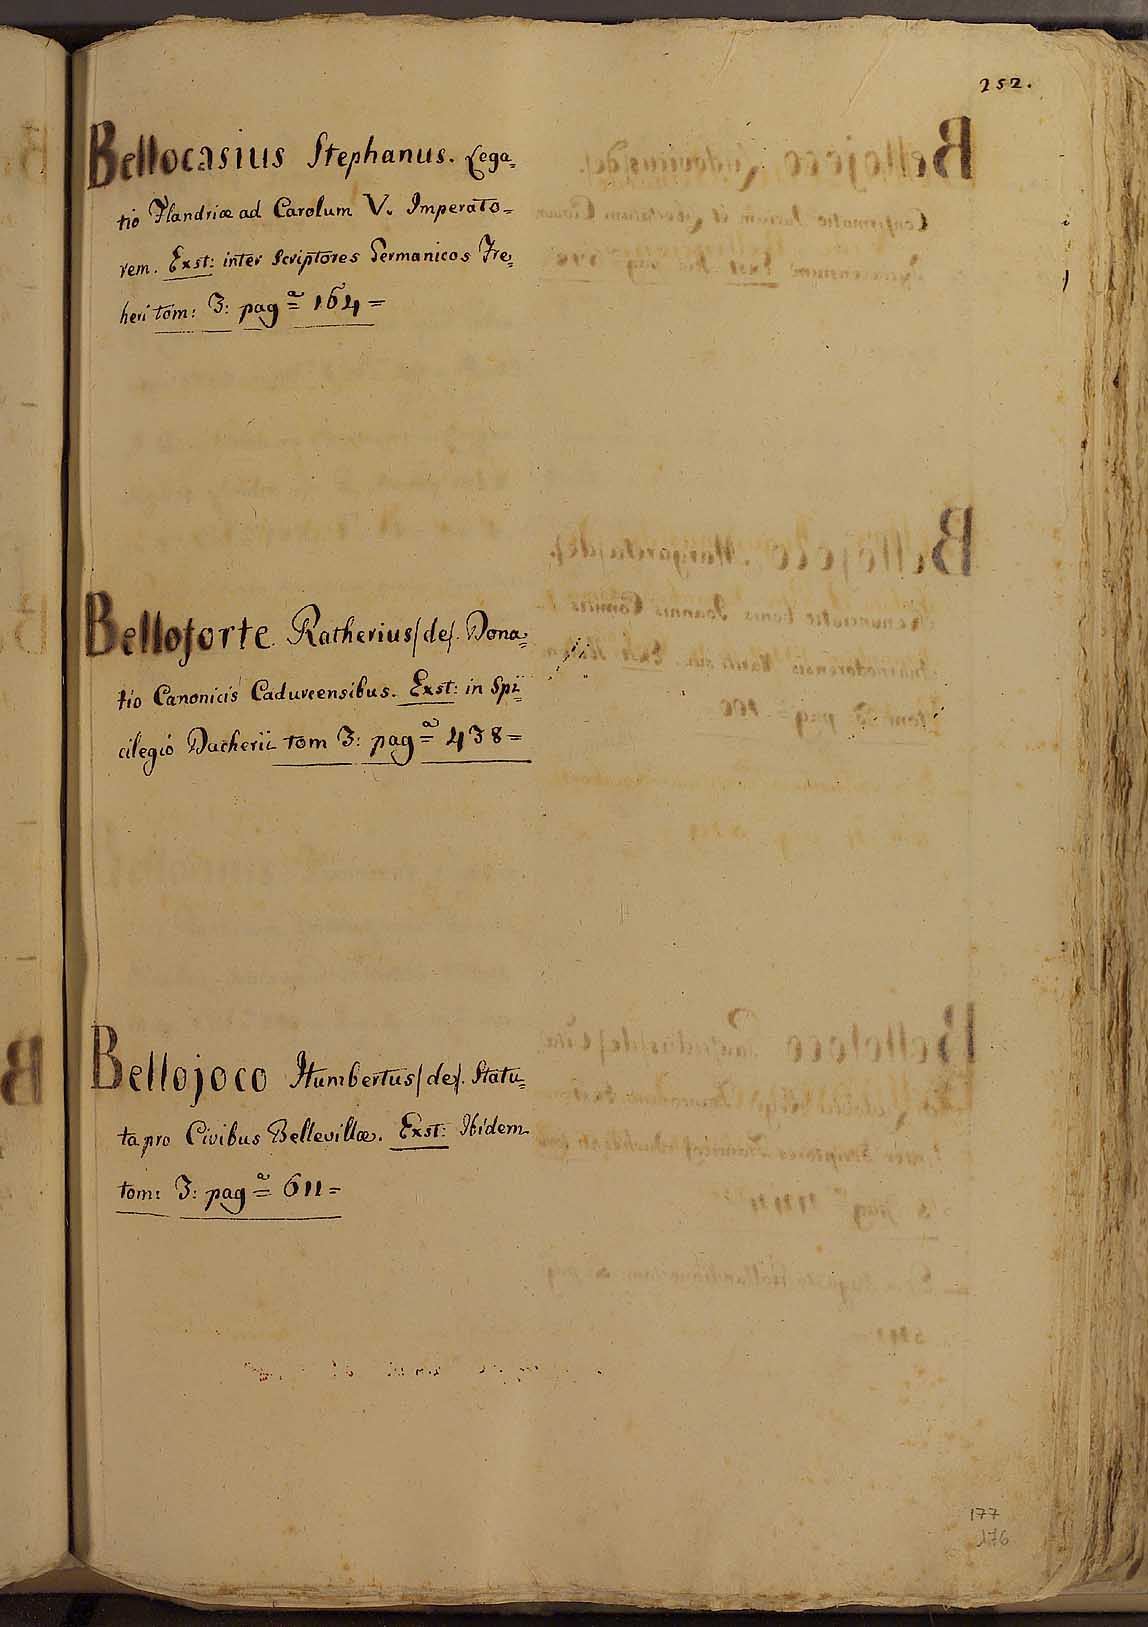 252.
Bellocasius Stephanus. Lega=
tio Flandriæ ad Carolum V. Imperato=
rem. Exst: inter Scriptores Germanicos Fre=
heri tom: 3: pag=ª 164=
Belloforte Ratherius/de/. Dona=
tio Canonicis Cadurcensibus. Exst: in Spi=
cilegio Dacherii tom 3: pag=ª 438=
Bellojoco Humbertus/de/. Statu=
ta pro Civibus Bellevillæ. Exst: Ibidem
tom: 3: pag=ª 611=
177
176